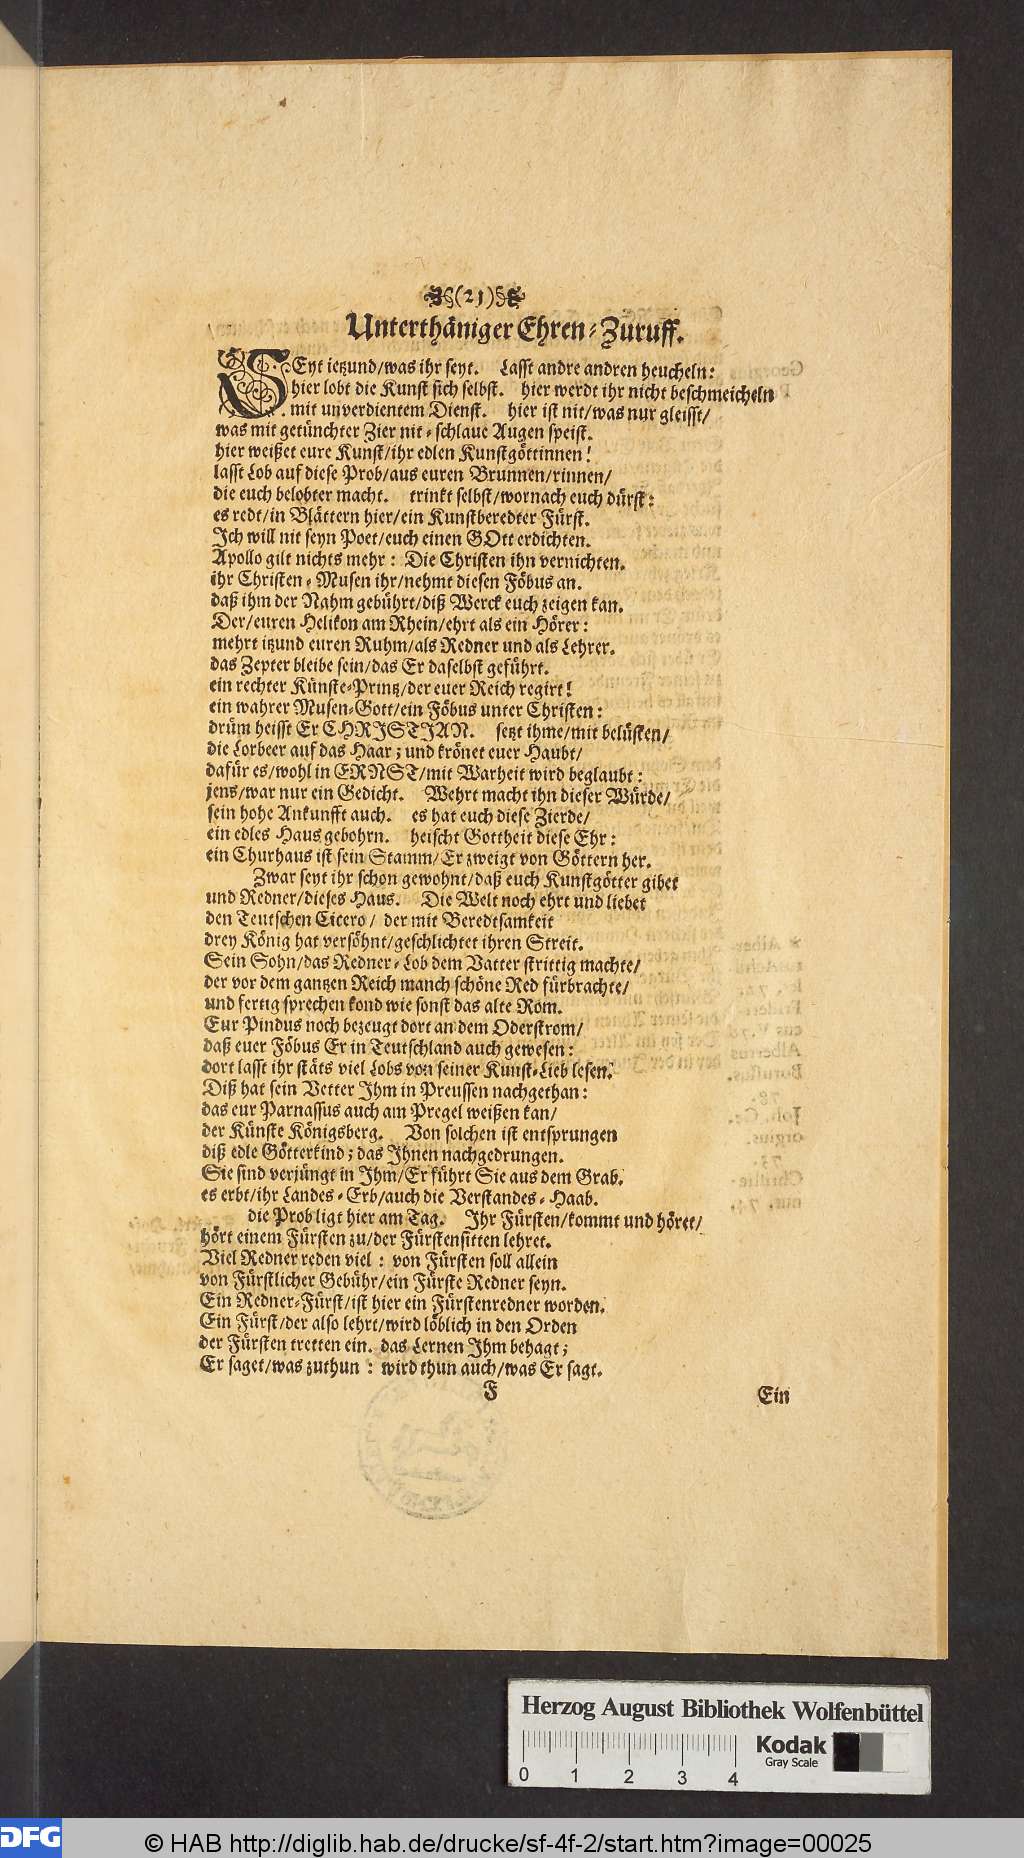 (21)
Unterthäniger Ehren-Zuruff.
SEyt ietzund/was ihr seyt. Lasst andre andren heucheln:
hier lobt die Kunst sich selbst. hier werdt ihr nicht beschmeicheln
mit unverdientem Dienst. hier ist nit/was nur gleisst/
was mit getünchter Zier nit-schlaue Augen speist.
hier weißet eure Kunst/ihr edlen Kunstgöttinnen!
lasst Lob auf diese Prob/aus euren Brunnen/rinnen/
die euch belobter macht. trinkt selbst/wornach euch dürst:
es redt/in Blättern hier/ein Kunstberedter Fürst.
Ich will nit seyn Poet/euch einen GOtt erdichten.
Apollo gilt nichts mehr: Die Christen ihn vernichten.
ihr Christen-Musen ihr/nehmt diesen Föbus an.
daß ihm der Nahm gebührt/diß Werck euch zeigen kan.
Der/euren Helikon am Rhein/ehrt als ein Hörer:
mehrt itzund euren Ruhm/als Redner und als Lehrer.
das Zepter bleibe sein/das Er daselbst geführt.
ein rechter Künste-Printz/der euer Reich regirt!
ein wahrer Musen-Gott/ein Föbus unter Christen:
drüm heisst Er CHRISTIAN. setzt ihme/mit belüsten/
die Lorbeer auf das Haar; und krönet euer Haubt/
dafür es/wohl in ERNST/mit Warheit wird beglaubt:
jens/war nur ein Gedicht. Wehrt macht ihn dieser Würde/
sein hohe Ankunfft auch. es hat euch diese Zierde/
ein edles Haus gebohrn. heischt Gottheit diese Ehr:
ein Churhaus ist sein Stamm/Er zweigt von Göttern her.
Zwar seyt ihr schon gewohnt/daß euch Kunstgötter gibet
und Redner/dieses Haus. Die Welt noch ehrt und liebet
den Teutschen Cicero/ der mit Beredtsamkeit
drey König hat versöhnt/geschlichtet ihren Streit.
Sein Sohn/das Redner-Lob dem Vatter strittig machte/
der vor dem gantzen Reich manch schöne Red fürbrachte/
und fertig sprechen kond wie sonst das alte Rom.
Eur Pindus noch bezeugt dort an dem Oderstrom/
daß euer Föbus Er in Teutschland auch gewesen:
dort lasst ihr stäts viel Lobs von seiner Kunst-Lieb lesen.
Diß hat sein Vetter Ihm in Preussen nachgethan:
das eur Parnassus auch am Pregel weißen kan/
der Künste Königsberg. Von solchen ist entsprungen
diß edle Götterkind; das Ihnen nachgedrungen.
Sie sind verjüngt in Ihm/Er führt Sie aus dem Grab.
es erbt/ihr Landes-Erb/auch die Verstandes-Haab.
die Prob ligt hier am Tag. Ihr Fürsten/kommt und höret/
hört einem Fürsten zu/der Fürstensitten lehret.
Viel Redner reden viel: von Fürsten soll allein
von Fürstlicher Gebühr/ein Fürste Redner seyn.
Ein Redner-Fürst/ist hier ein Fürstenredner worden.
Ein Fürst/der also lehrt/wird löblich in den Orden
der Fürsten tretten ein. das Lernen Ihm behagt;
Er saget/was zuthun: wird thun auch/was Er sagt.
F Ein
Herzog August Bibliothek Wolfenbüttel
Kodak
Gray Scale
0 1 2 3 4
DFG
© HAB http://diglib.hab.de/drucke/sf-4f-2/start.htm?image=00025